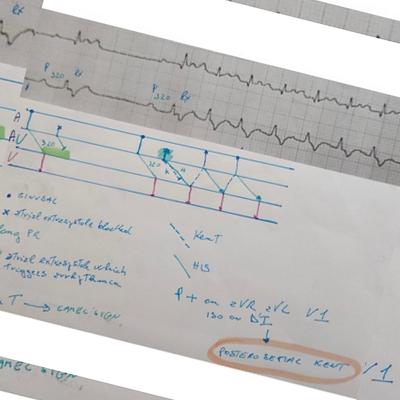 Rx
P 320 Rx
P 320 Rx
A
AV
V
320
320
K H
• SINUSAL
x atrial extrasystole blocked
long PR
atrial extrasystole which
triggers arrhythmia
T → GAMEC SIGN
Kent
HIS
P + on aVR aVL V1
ISO on DI
POSTEROSEPTAL KENT
V1
GAMEC SIGN